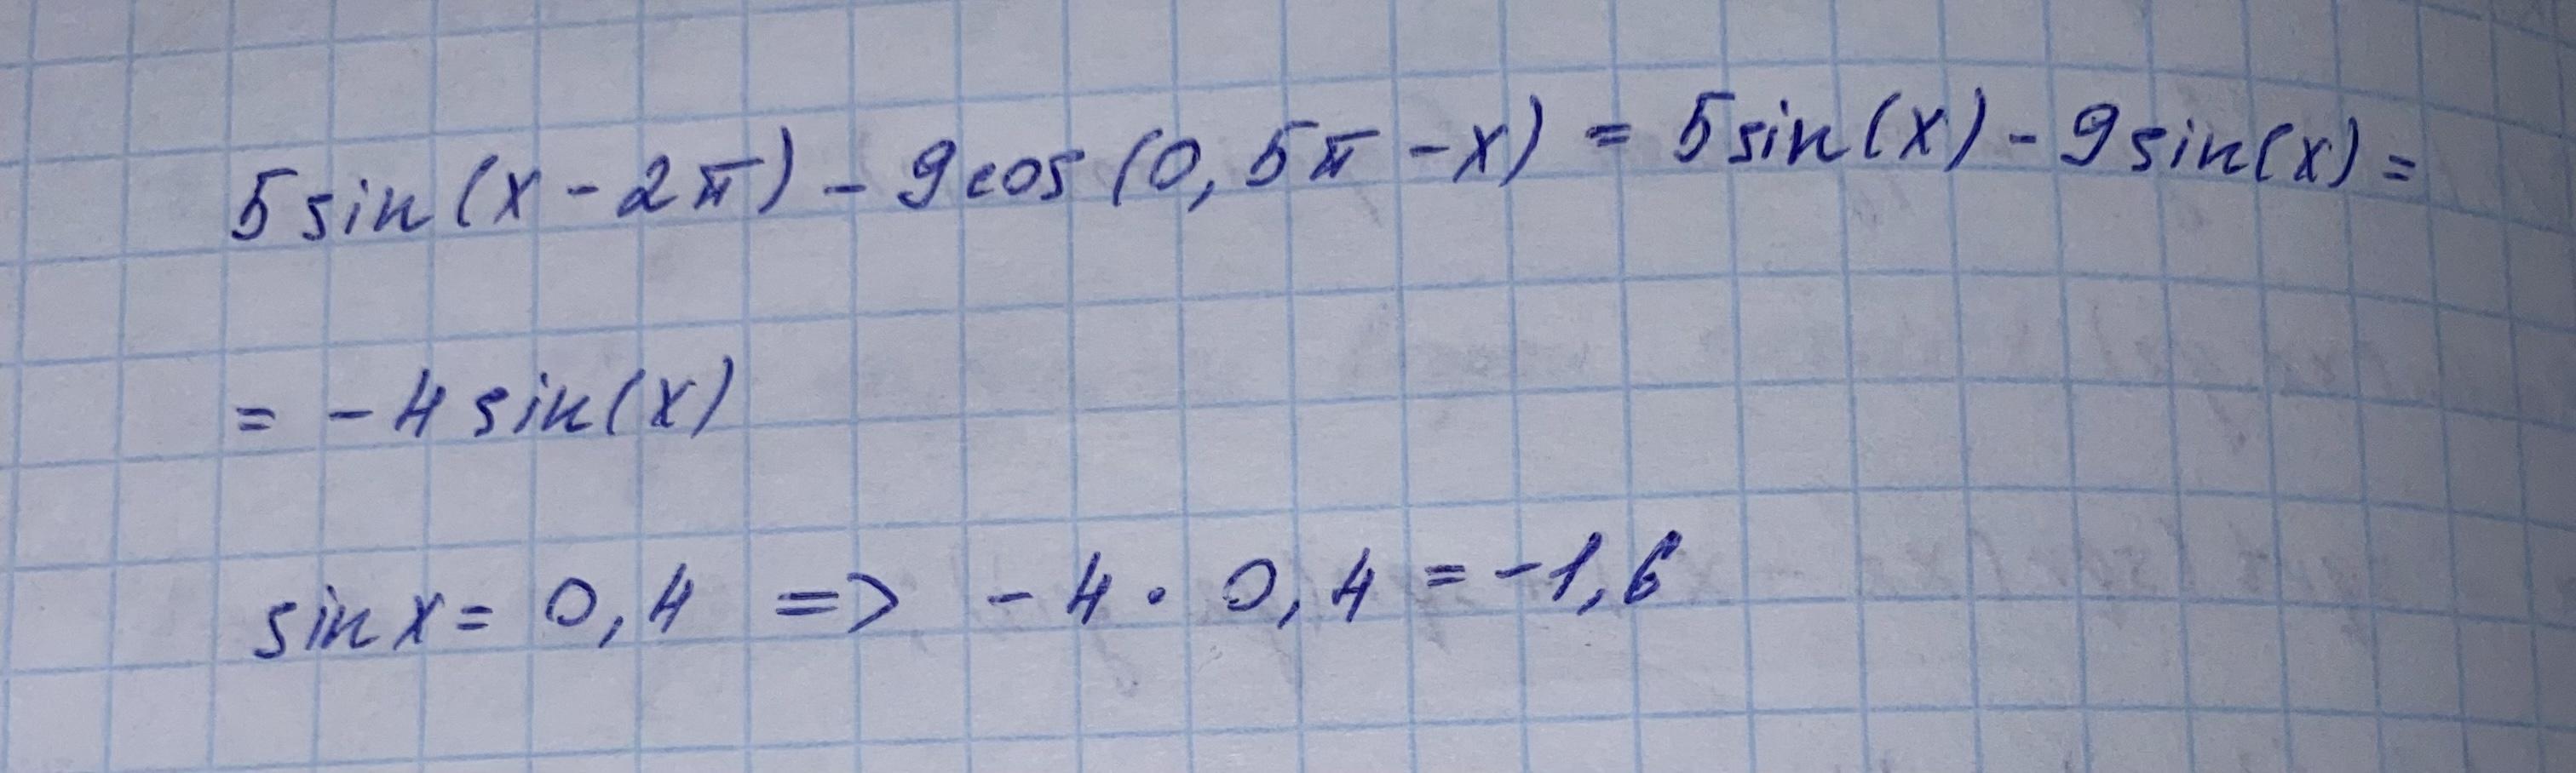 5sin(x - 2π) - 9cos(0,5π - x) = 5sin(x) - 9sin(x) =
= - 4sin(x)
sin x = 0,4 => - 4 · 0,4 = -1,6